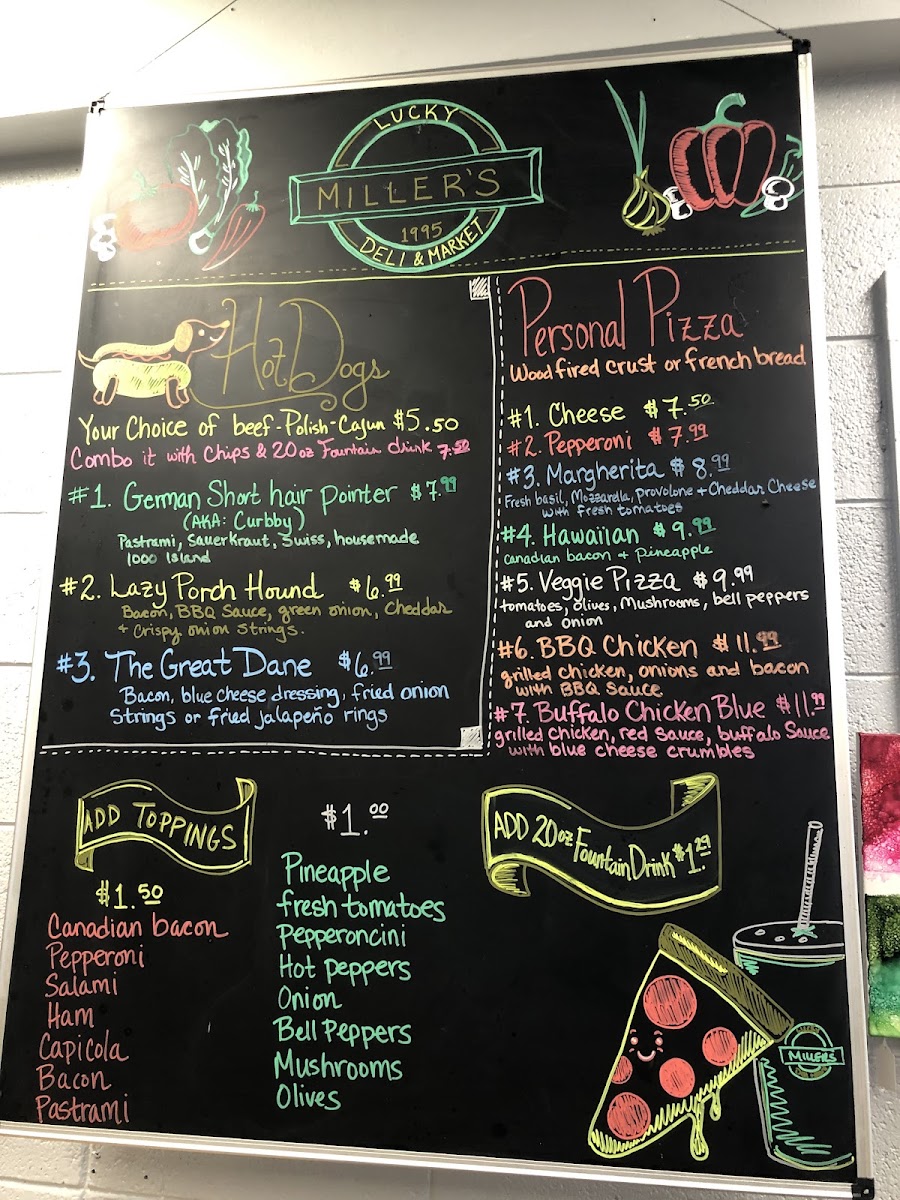 LUCKY
MILLER'S
1995
DELI & MARKET
Hot Dogs
Your Choice of beef-Polish-Cajun $5.50
Combo it with Chips & 20oz Fountain drink 7.50
#1. German Short hair pointer $7.99
(AKA: Curbby)
Pastrami, Sauerkraut, Swiss, housemade
1000 Island
#2. Lazy Porch Hound $6.99
Bacon, BBQ Sauce, green onion, Cheddar
+ Crispy onion strings.
#3. The Great Dane $6.99
Bacon, blue cheese dressing, fried onion
Strings or fried jalapeño rings
Personal Pizza
Wood fired crust or french bread
#1. Cheese $7.50
#2. Pepperoni $7.99
#3. Margherita $8.99
Fresh basil, Mozzarella, provolone + Cheddar Cheese
with fresh tomatoes
#4. Hawaiian $9.99
Canadian bacon + pineapple
#5. Veggie Pizza $9.99
tomatoes, olives, Mushrooms, bell peppers
and onion
#6. BBQ Chicken $11.99
grilled chicken, onions and bacon
with BBQ Sauce
#7. Buffalo Chicken Blue $11.99
grilled chicken, red sauce, buffalo Sauce
with blue cheese crumbles
ADD TOPPINGS
$1.50
Canadian bacon
Pepperoni
Salami
Ham
Capicola
Bacon
Pastrami
$1.00
Pineapple
fresh tomatoes
Pepperoncini
Hot peppers
Onion
Bell Peppers
Mushrooms
Olives
ADD 20oz Fountain Drink $1.29
MILLERS